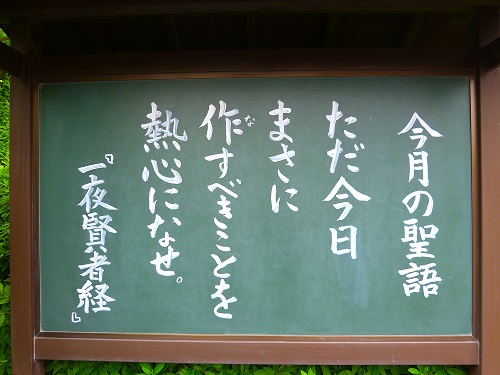 今月の聖語
ただ今日
まさに
作すべきことを
な
熱心になせ。
『一夜賢者経』